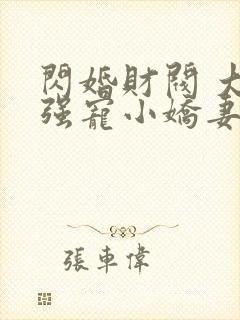 閃婚財閥 大
强寵小嬌妻
張車偉